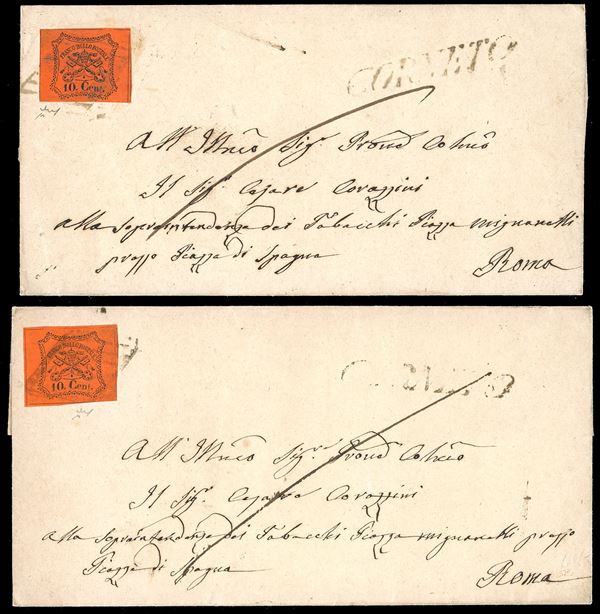 FRANCO BOLLO POSTALE
10 Cent.
CORNETO
All' Illmo Sig. Prone Colmo
Il Sig. Cesare Corazzini
alla Soprintendenza dei Tabacchi Piazza Mignanelli
presso Piazza di Spagna
Roma
FRANCO BOLLO POSTALE
10 Cent.
CORNETO
All' Illmo Sig. Prone Colmo
Il Sig. Cesare Corazzini
alla Soprintendenza dei Tabacchi Piazza Mignanelli presso
Piazza di Spagna
Roma